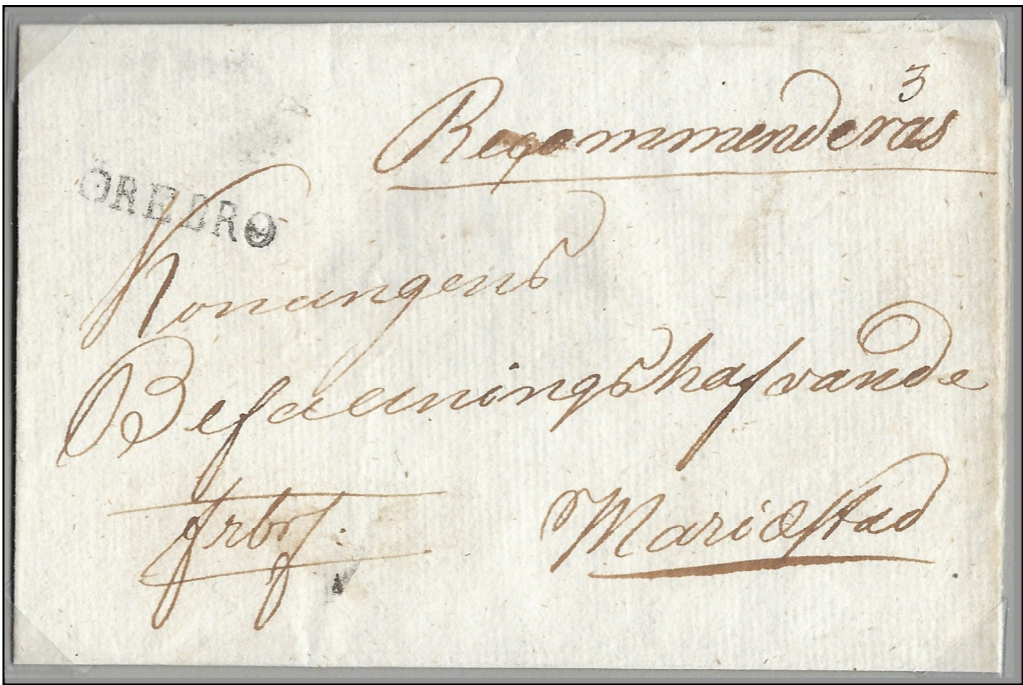 3
Recommenderas
ÖREBRO
Konungens
Befallningshafvande
frbrf:
Mariæstad